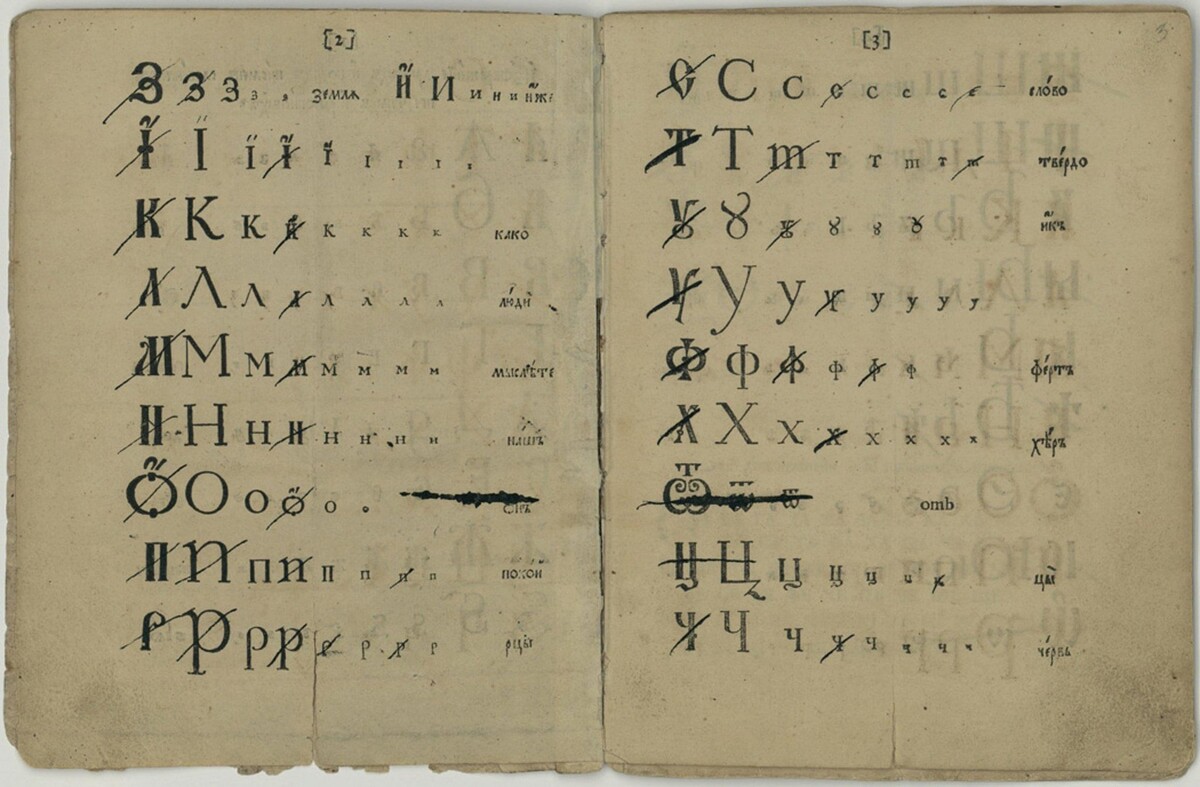 [2]
З З З з з землѧ И̃ И и и и и иже
Ї І ї ї ї і і і і
К К к к к к к к како
Л Л л л л л л л люди
М М м м м м м м мыслѣте
Н Н н н н н н н нашъ
О О о о о о
П П п п п п п п покой
Р Р р р р р р р рцы
[3]
С С с с с с с с слово
Т Т т т т т т т твердо
Ꙋ Ꙋ ꙋ ꙋ ꙋ ꙋ икъ
У У у у у у у у
Ф ф ф ф ф ф фертъ
Х Х х х х х х х хѣръ
Ѿ ѿ ѿ отъ
Ц Ц ц ц ц ц ц цы
Ч Ч ч ч ч ч ч ч червь
3